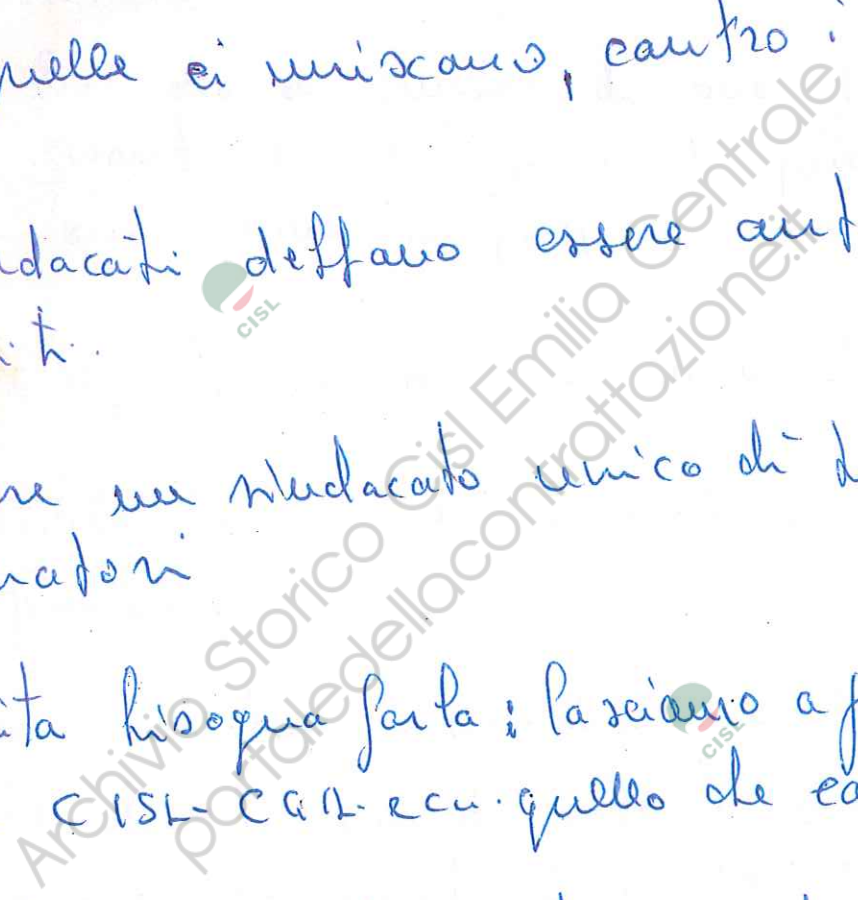 quelle ci uniscano, contro i
ndacati debbano essere aut
iti.
re un sindacato unico di
natori
ita bisogna farla; lasciamo a
CISL-CGIL- ecc. quello che co
Archivio Storico Cisl Emilia Centrale
portaledellacontrattazione.it
CISL
CISL